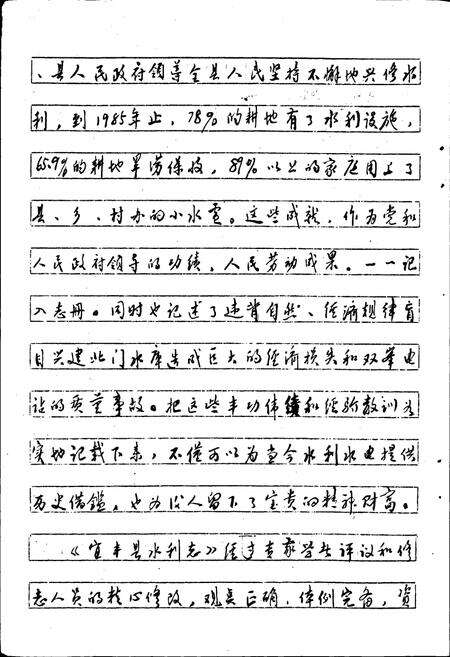 、县人民政府领导全县人民坚持不懈地兴修水
利，到1985年止，78%的耕地有了水利设施，
65.9%的耕地旱涝保收，89%以上的家庭用上了
县、乡、村办的小水电。这些成就，作为党和
人民政府领导的功绩，人民劳动成果。一一记
入志册。同时也记述了违背自然、经济规律盲
目兴建北门水库造成巨大的经济损失和双峰电
站的质量事故。把这些丰功伟绩和经验教训如
实地记载下来，不仅可以为当今水利水电提供
历史借鉴，也为后人留下了宝贵的精神财富。
《宜丰县水利志》经过专家学者评议和修
志人员的精心修改，观点正确，体例完备，资